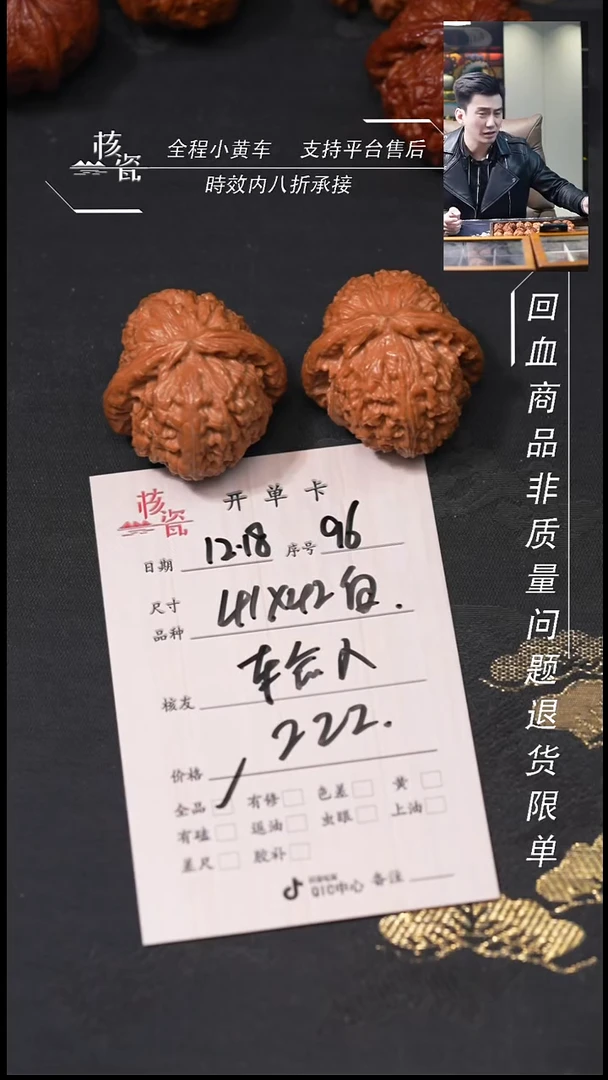 核瓷
全程小黄车 支持平台售后
時效内八折承接
回血商品非质量问题退货限单
核瓷
开单卡
日期 12.18 序号 96
尺寸
品种 41X42白.
核友
222.
价格
全品 有修 色差 黄
有磕 返油 虫眼 上油
差尺 胶补
QIC中心 备注